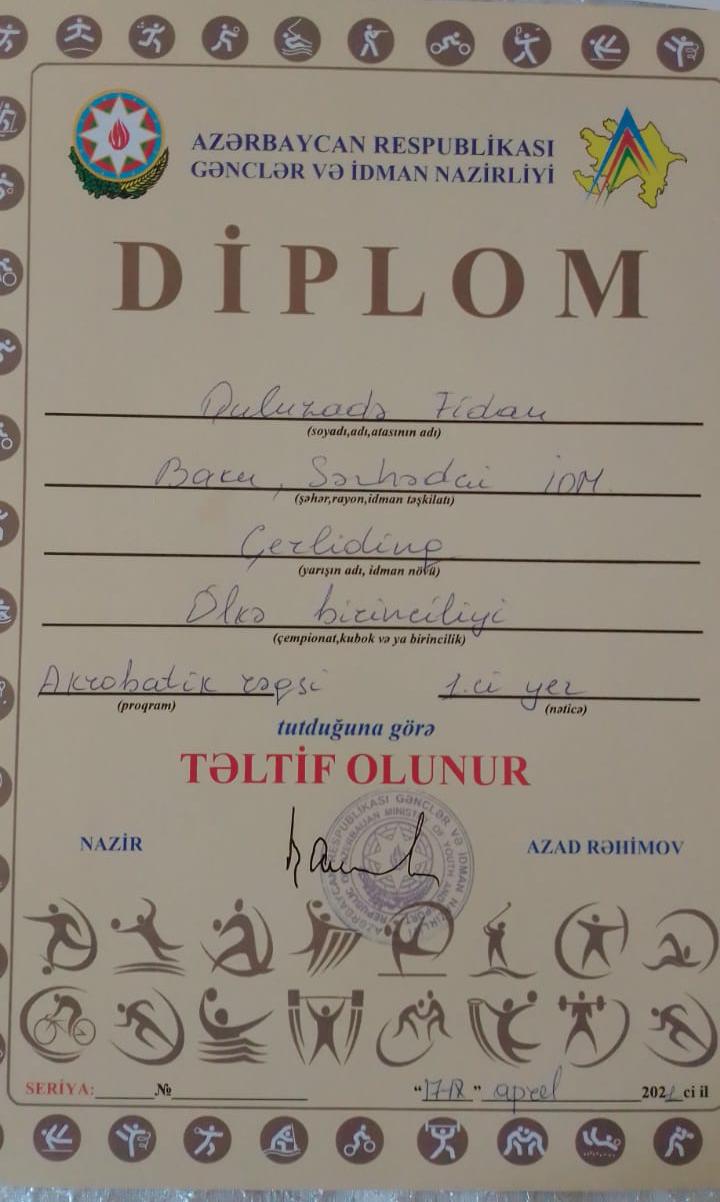 AZƏRBAYCAN RESPUBLİKASI
GƏNCLƏR VƏ İDMAN NAZİRLİYİ
DİPLOM
Quluzadə Fidan
(soyadı,adı,atasının adı)
Bakı, Sərhədçi İDM
(şəhər,rayon,idman təşkilatı)
Çerliding
(yarışın adı, idman növü)
Ölkə birinciliyi
(çempionat,kubok və ya birincilik)
Akrobatik rəqsi 1.ci yer
(proqram) (nəticə)
tutduğuna görə
TƏLTİF OLUNUR
NAZİR AZAD RƏHİMOV
SERİYA: № "17-18" aprel 202 ci il